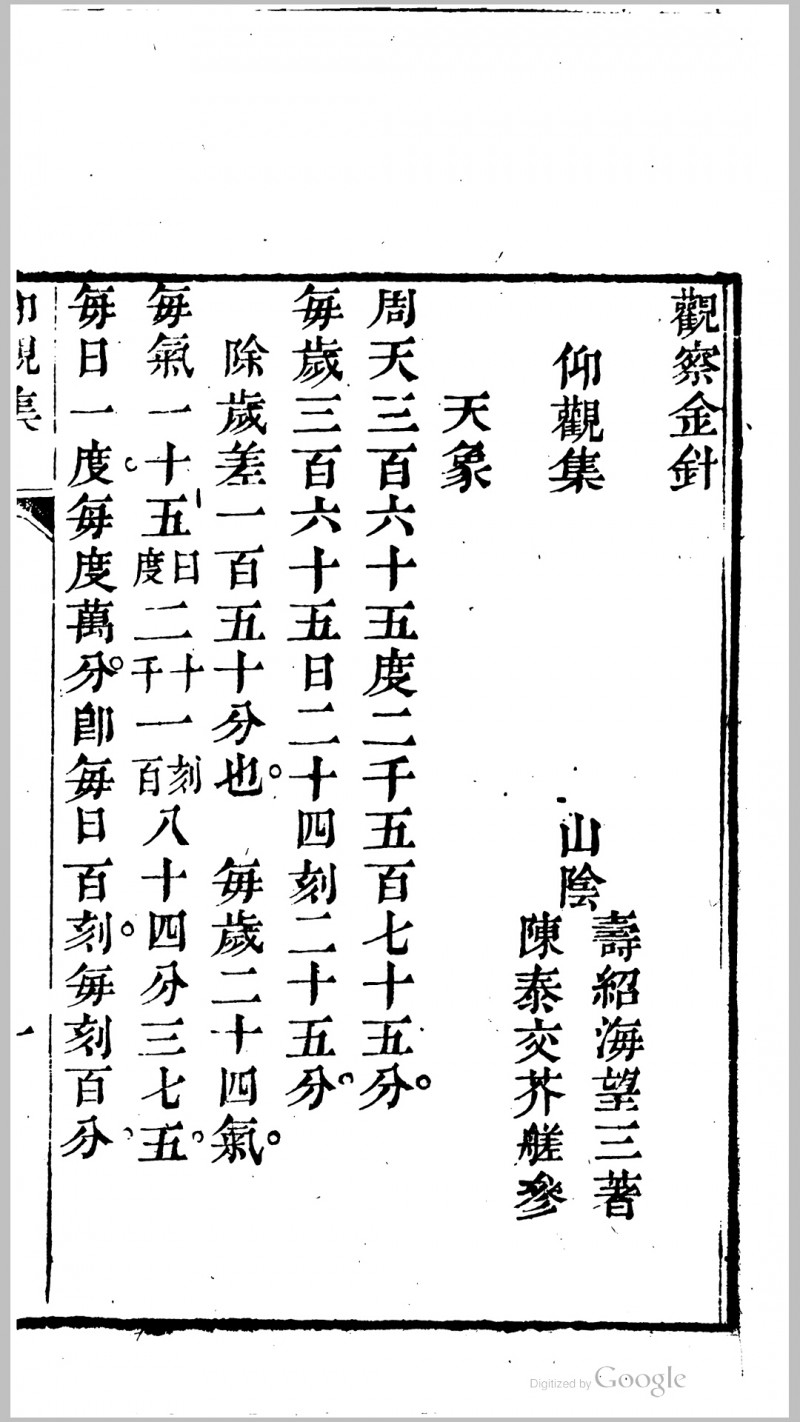 觀察金針
仰觀集
山陰
壽紹海望三著
陳泰交芥艖參
天象
周天三百六十五度二千五百七十五分。
每歲三百六十五日二十四刻二十五分。
除歲差一百五十分也。 每歲二十四氣。
每氣一十五日度二十千一刻百八十四分三七五。
每日一度。每度萬分。卽每日百刻。每刻百分。
仰觀集
一
Digitized by Google